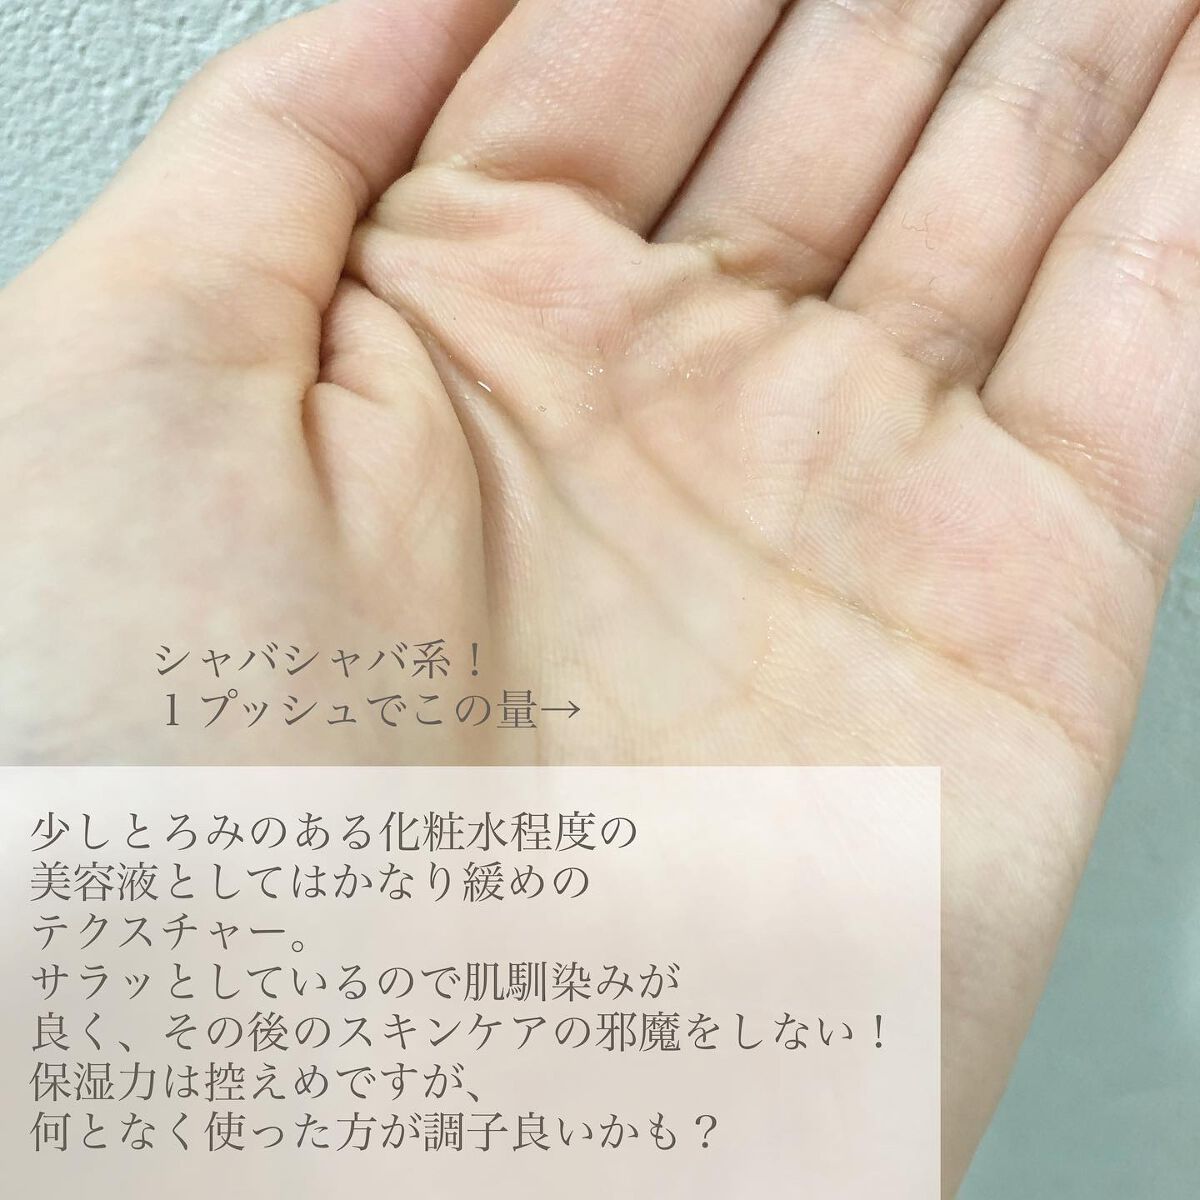 シャバシャバ系！
１プッシュでこの量→
少しとろみのある化粧水程度の
美容液としてはかなり緩めの
テクスチャー。
サラッとしているので肌馴染みが
良く、その後のスキンケアの邪魔をしない！
保湿力は控えめですが、
何となく使った方が調子良いかも？